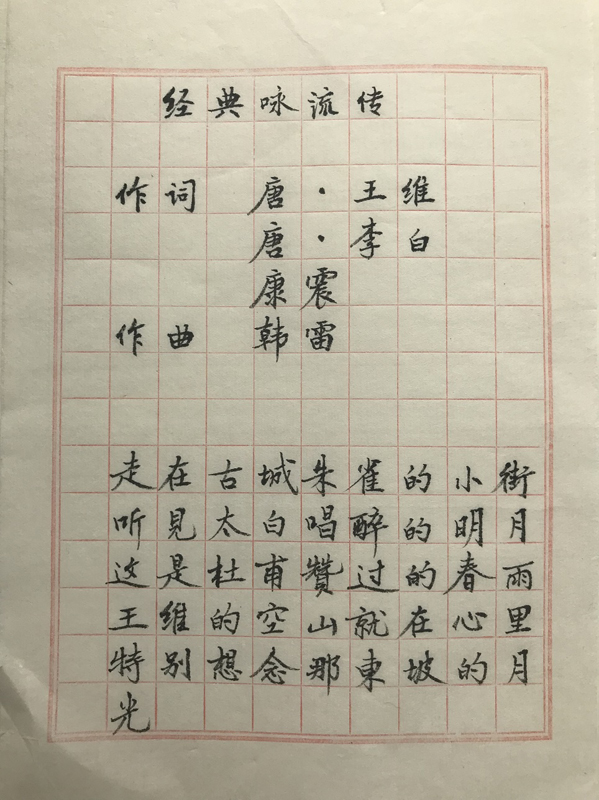 经典咏流传
作词 唐·王维
唐·李白
康震
作曲 韩雷
走在古城朱雀的小街
听見太白唱醉的明月
这是杜甫赞过的春雨
王维的空山就在心里
特别想念那東坡的月
光